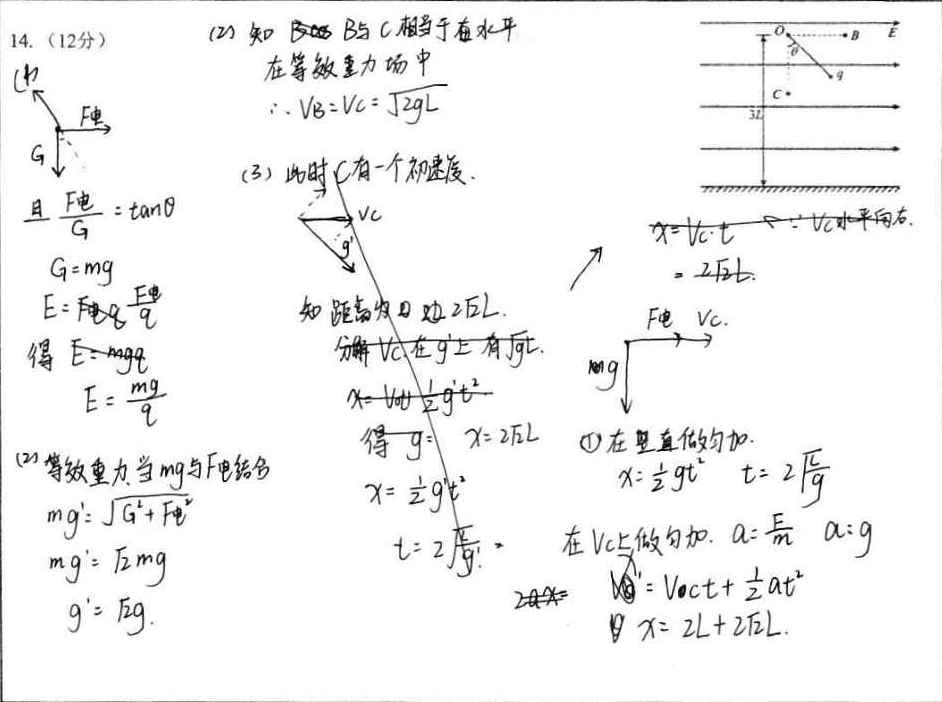 14. （12分）
(1)
F电
G
且 F电/G = tanθ
G=mg
E= F电/q
得 E=mgq
E = mg/q
(2) 等效重力 当mg与F电结合
mg'= √(G²+F电²)
mg'= √2mg
g'= √2g.
(2) 知 B与C相当于在水平
在等效重力场中
∴ VB=VC=√2gL
(3) 此时C有一个初速度.
VC
g'
知距离为 2√2L.
分解VC.在g'上 有√gL.
得 g= x=2√2L
x= ½g't²
t= 2√(L/g').
O
B
E
θ
q
C
3L
x=VC·t ∵ VC水平向右.
= 2√2L.
F电 VC.
mg
① 在竖直做匀加.
x=½gt² t= 2√(L/g)
在VC上做匀加. a=F/m a=g
= V0ct+½at²
x= 2L+2√2L.
2ax=